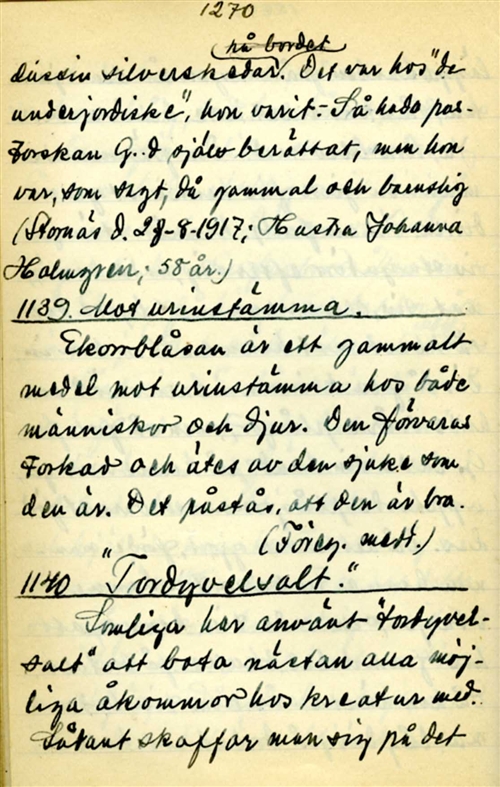 1270
på bordet
dussin silverskedar. Det var hos "de
underjordiske", hon varit. - Så hade pas-
torskan G..d själv berättat, men hon
var, som sagt, då gammal och barnslig
(Stornäs d. 28-8-1917; Hustru Johanna
Holmgren; 58 år.)
1139. Mot urinstämma.
Ekorrblåsan är ett gammalt
medel mot urinstämma hos både
människor och djur. Den förvaras
torkad och ätes av den sjuke som
den är. Det påstås, att den är bra
(Föreg. medd.)
1140 "Tordyvelsalt."
Somliga har använt "tordyvel-
salt" att bota nästan alla möj-
liga åkommor hos kreatur med.
Sådant skaffar man sig på det